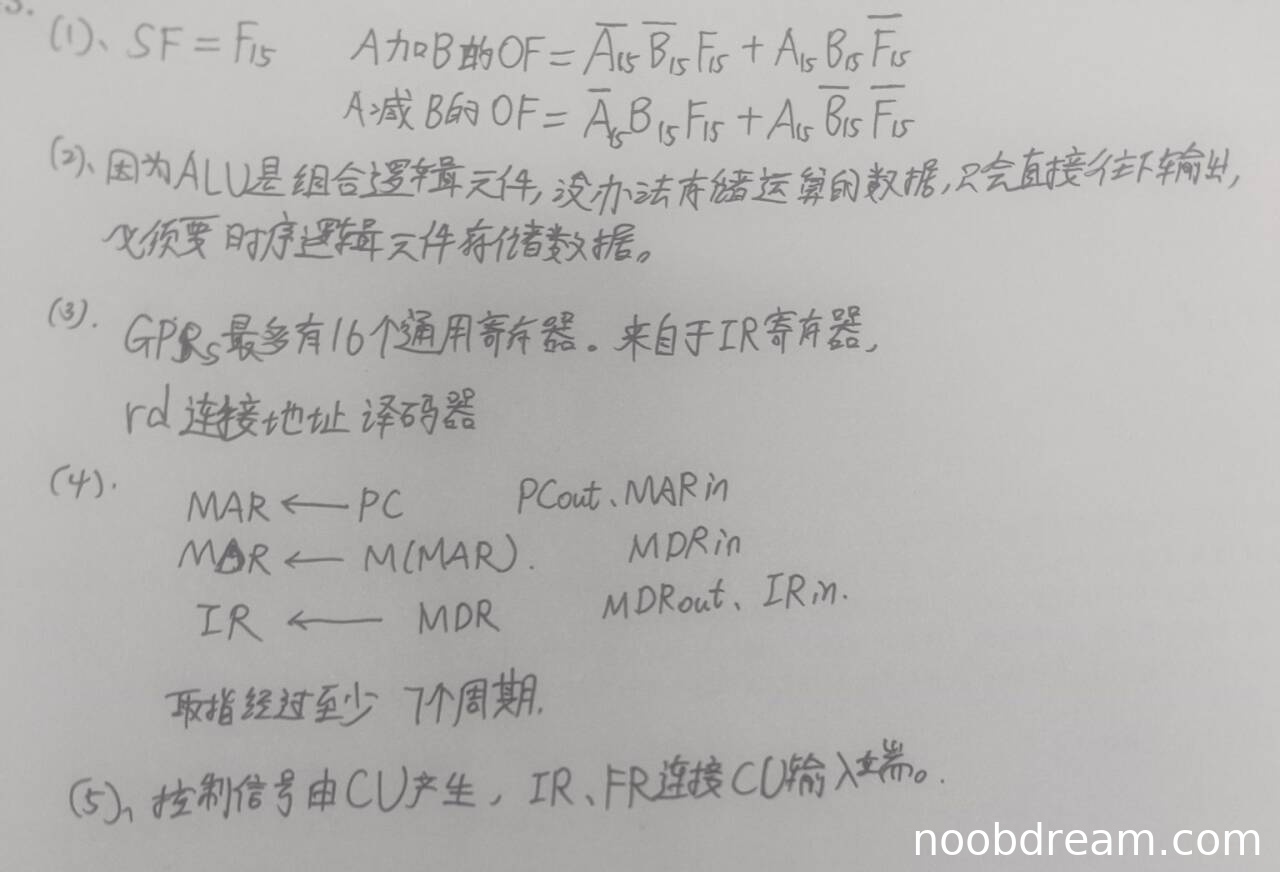 (1)、SF = F₁₅ A加B的OF = A̅₁₅ B̅₁₅ F₁₅ + A₁₅ B₁₅ F̅₁₅
A减B的OF = A̅₁₅ B₁₅ F₁₅ + A₁₅ B̅₁₅ F̅₁₅
(2)、因为ALU是组合逻辑元件,没办法存储运算的数据,只会直接往下输出,
必须要时序逻辑元件存储数据。
(3). GPRs最多有16个通用寄存器。来自于IR寄存器,
rd连接地址译码器
(4).
MAR ← PC PCout、MARin
MDR ← M(MAR). MDRin
IR ← MDR MDRout、IRin.
取指经过至少 7个周期.
(5)、控制信号由CU产生, IR、FR连接CU输入端。
noobdream.com